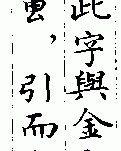 此字與金
，引而